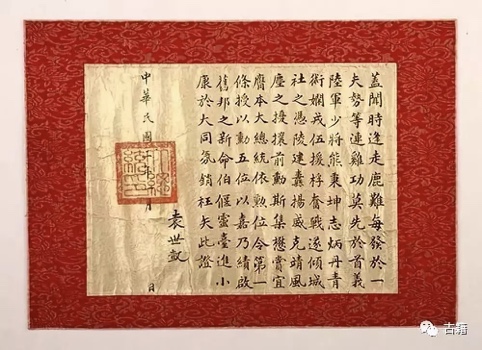 蓋聞時逢走鹿難每發於一
夫勢等連雞功莫先於首義
陸軍少將熊秉坤志炳丹青
術嫻戎伍援桴奮戰遂傾城
社之憑陵建纛揚威克靖風
塵之擾攘前勳斯集懋賞宜
膺本大總統依勲位令第一
條授以勳五位以嘉乃績啟
舊邦之新命伯偃靈臺進小
康於大同氛銷枉矢此證
袁世凱
中華民國 月 日
古籍